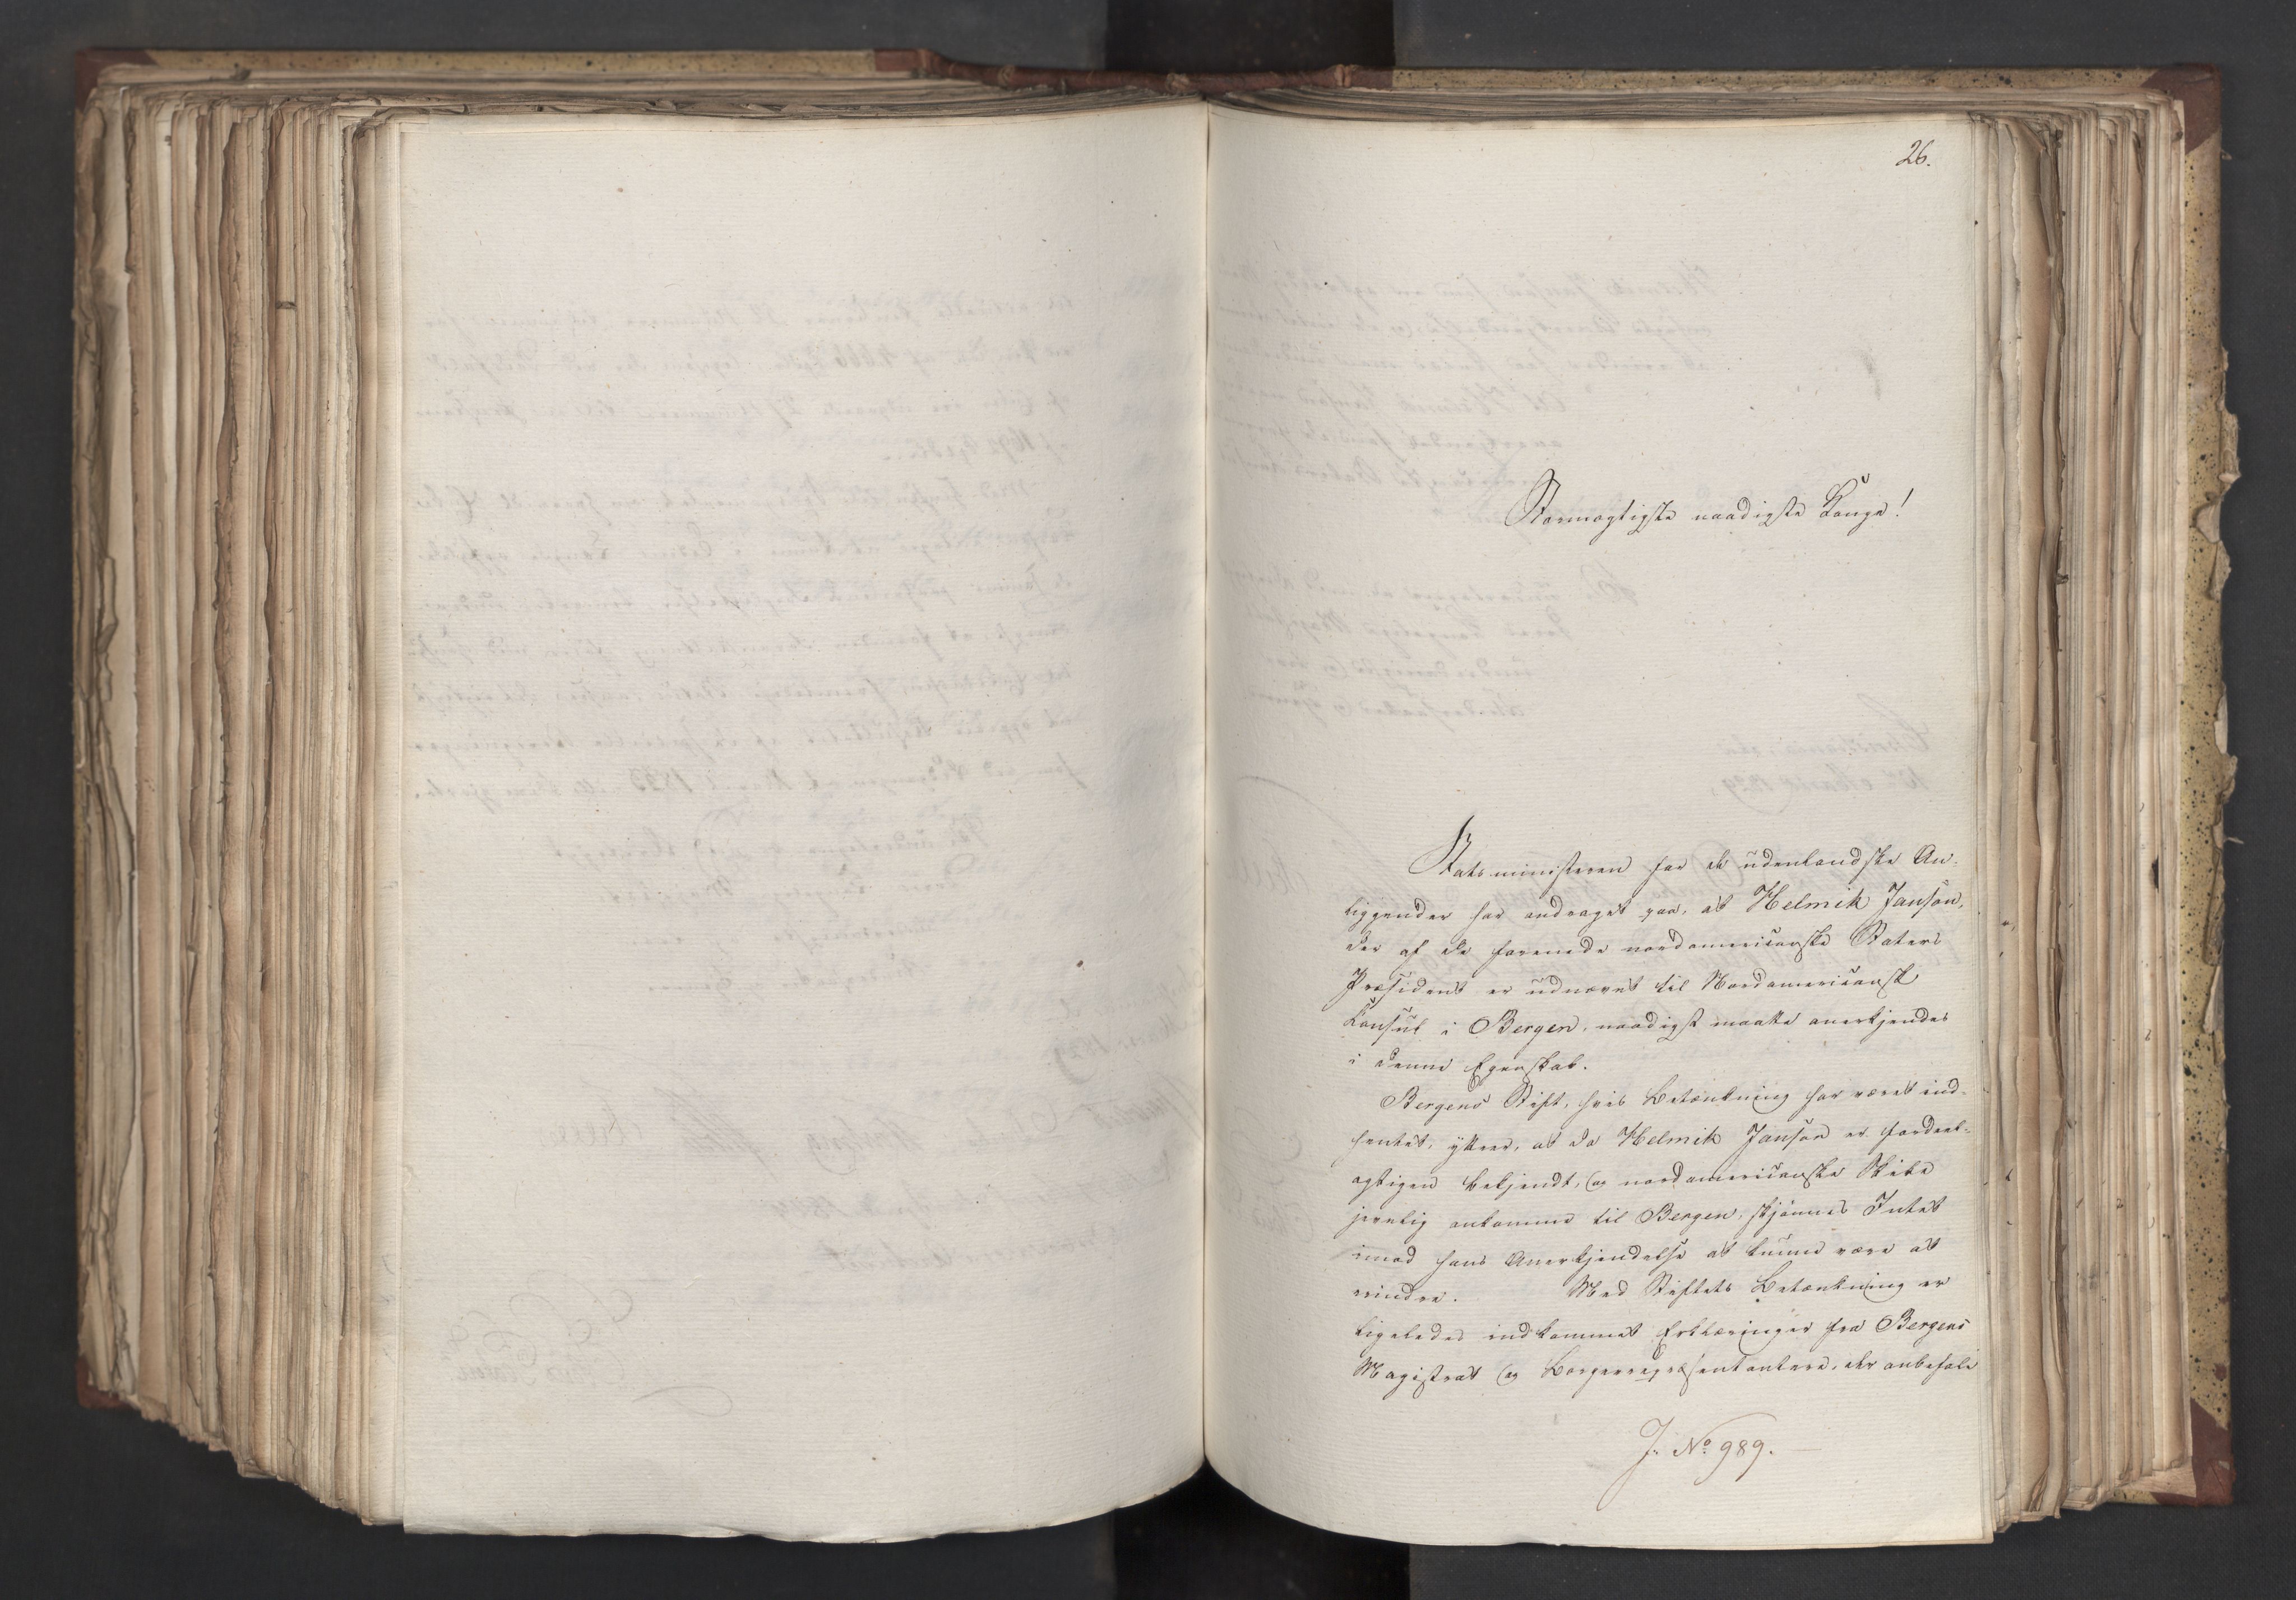 26.
Stormægtigste naadigste Konge!
Statsministeren for de udenlandske An-
liggender har andraget paa, at Helmik Janson,
der af de forenede nordamericanske Staters
Præsident er udnævnt til Nordamericansk
Konsul i Bergen, naadigst maatte anerkjendes
i denne Egenskab.
Bergens Stift, hvis Betænkning har været ind-
hentet, yttrer, at da Helmik Janson er fordeel-
agtigen bekjendt, og nordamericanske Skibe
jevnlig ankomme til Bergen, skjønnes Intet
imod hans Anerkjendelse at kunne være at
erindre. Med Stiftets Betænkning er
ligeledes indkommet Erklæringer fra Bergens
Magistrat og Borgerrepræsentantere, der anbefale
J. No 989.